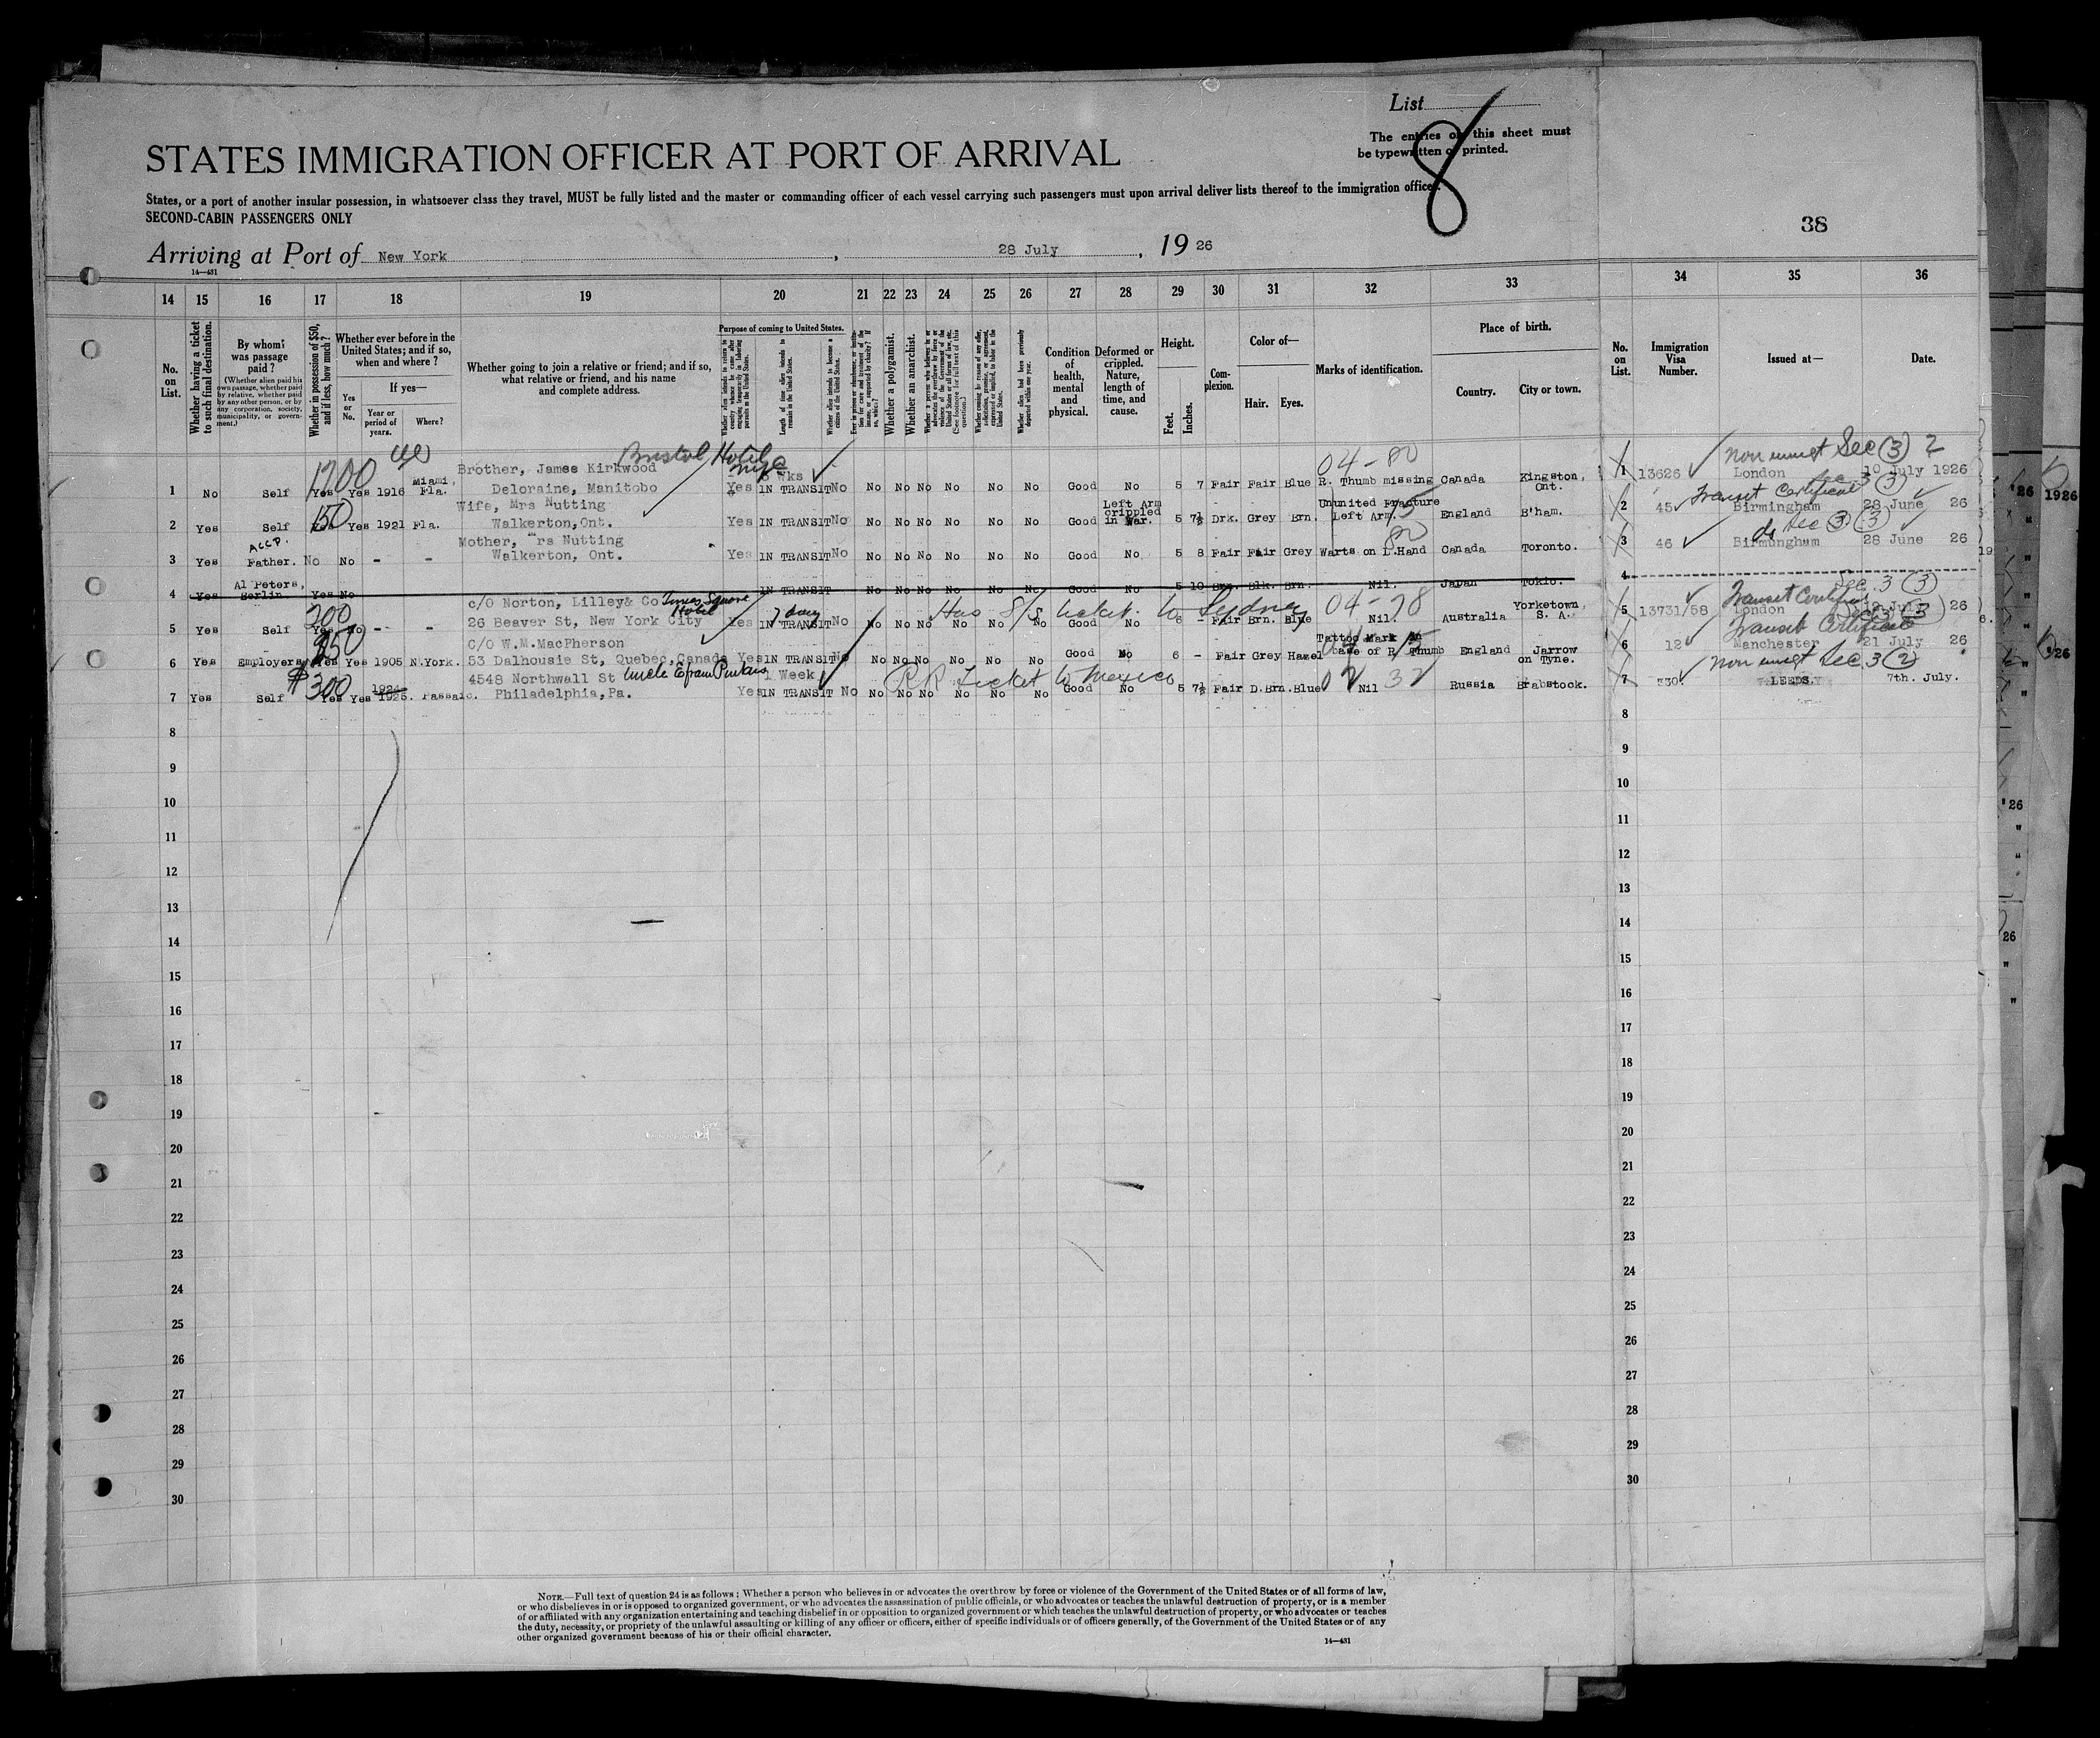 List
8
The entries on this sheet must
be typewritten or printed.
STATES IMMIGRATION OFFICER AT PORT OF ARRIVAL
States, or a port of another insular possession, in whatsoever class they travel, MUST be fully listed and the master or commanding officer of each vessel carrying such passengers must upon arrival deliver lists thereof to the immigration officer.
SECOND-CABIN PASSENGERS ONLY
38
Arriving at Port of New York, 28 July, 19 26
14—431
14 15 16 17 18 19 20 21 22 23 24 25 26 27 28 29 30 31 32 33 34 35 36
No. on List.
Whether having a ticket to such final destination.
By whom was passage paid?
(Whether alien paid his own passage, whether paid by relative, whether paid by any other person, or by any corporation, society, municipality, or government.)
Whether in possession of $50, and if less, how much?
Whether ever before in the United States; and if so, when and where?
Yes or No.
If yes—
Year or period of years.
Where?
Whether going to join a relative or friend; and if so, what relative or friend, and his name and complete address.
Purpose of coming to United States.
Length of time alien intends to remain in the United States.
Whether alien intends to become a citizen of the United States.
Whether a polygamist.
Whether an anarchist.
Condition of health, mental and physical.
Deformed or crippled. Nature, length of time, and cause.
Height.
Feet. Inches.
Complexion.
Color of—
Hair. Eyes.
Marks of identification.
Place of birth.
Country. City or town.
No. on List.
Immigration Visa Number.
Issued at—
Date.
Bristol Hotel
nyc
04-80
non immgt Sec (3) 2
1 No Self 1700 Yes Yes 1916 Miami, Fla. Brother, James Kirkwood Deloraine, Manitobo Yes wks IN TRANSIT No No No No No No No Good No 5 7 Fair Fair Blue R. Thumb missing Canada Kingston, Ont. 1 13626 London 10 July 1926
Transit Certificate Sec 3 (3)
2 Yes Self 150 Yes Yes 1921 Fla. Wife, Mrs Nutting Walkerton, Ont. Yes IN TRANSIT No No No No No No No Good Left Arm crippled in War. 5 7½ Drk. Grey Brn. Ununited Fracture Left Arm. England B'ham. 2 45 Birmingham 28 June 26
do Sec 3 (3)
3 Yes Accp. Father. No No - - Mother, Mrs Nutting Walkerton, Ont. Yes IN TRANSIT No No No No No No No Good No 5 8 Fair Fair Grey Warts on L.Hand Canada Toronto. 3 46 Birmingham 28 June 26
4 Yes Al Peters, Berlin. Yes No IN TRANSIT No No No No No No Good No 5 10 Brn. Blk. Brn. Nil. Japan Tokio. 4
Times Square Hotel
Has S/S ticket to Sydney 04-78
Transit Certificate Sec 3 (3)
5 Yes Self 200 Yes No - - c/o Norton, Lilley& Co 26 Beaver St, New York City Yes 7 days IN TRANSIT No No No No No No No Good No 6 - Fair Brn. Blue Nil. Australia Yorketown, S. A. 5 13731/58 London 12 July 26
Transit Certificate Sec 3 (3)
6 Yes Employers 250 Yes Yes 1905 N.York. C/O W.M.MacPherson 53 Dalhousie St, Quebec, Canada Yes IN TRANSIT No No No No No No No Good No 6 - Fair Grey Hazel Tattoo Mark on base of R Thumb England Jarrow on Tyne. 6 12 Manchester 21 July 26
Uncle Efram
RR Ticket to Mexico 02 32
non immgt Sec 3 (2)
7 Yes Self $300 Yes Yes 1924 1925. Passaic. 4548 Northwall St Philadelphia, Pa. Yes 1 Week IN TRANSIT No No No No No No No Good No 5 7½ Fair D.Brn. Blue Nil Russia Brabstock. 7 330. LEEDS. 7th. July.
8 8
9 9
10 10
11 11
12 12
13 13
14 14
15 15
16 16
17 17
18 18
19 19
20 20
21 21
22 22
23 23
24 24
25 25
26 26
27 27
28 28
29 29
30 30
NOTE.—Full text of question 24 is as follows: Whether a person who believes in or advocates the overthrow by force or violence of the Government of the United States or of all forms of law,
or who disbelieves in or is opposed to organized government, or who advocates the assassination of public officials, or who advocates or teaches the unlawful destruction of property, or is a member
of or affiliated with any organization entertaining and teaching disbelief in or opposition to organized government or which teaches the unlawful destruction of property, or who advocates or teaches
the duty, necessity, or propriety of the unlawful assaulting or killing of any officer or officers, either of specific individuals or of officers generally, of the Government of the United States or of any
other organized government because of his or their official character.
14—431